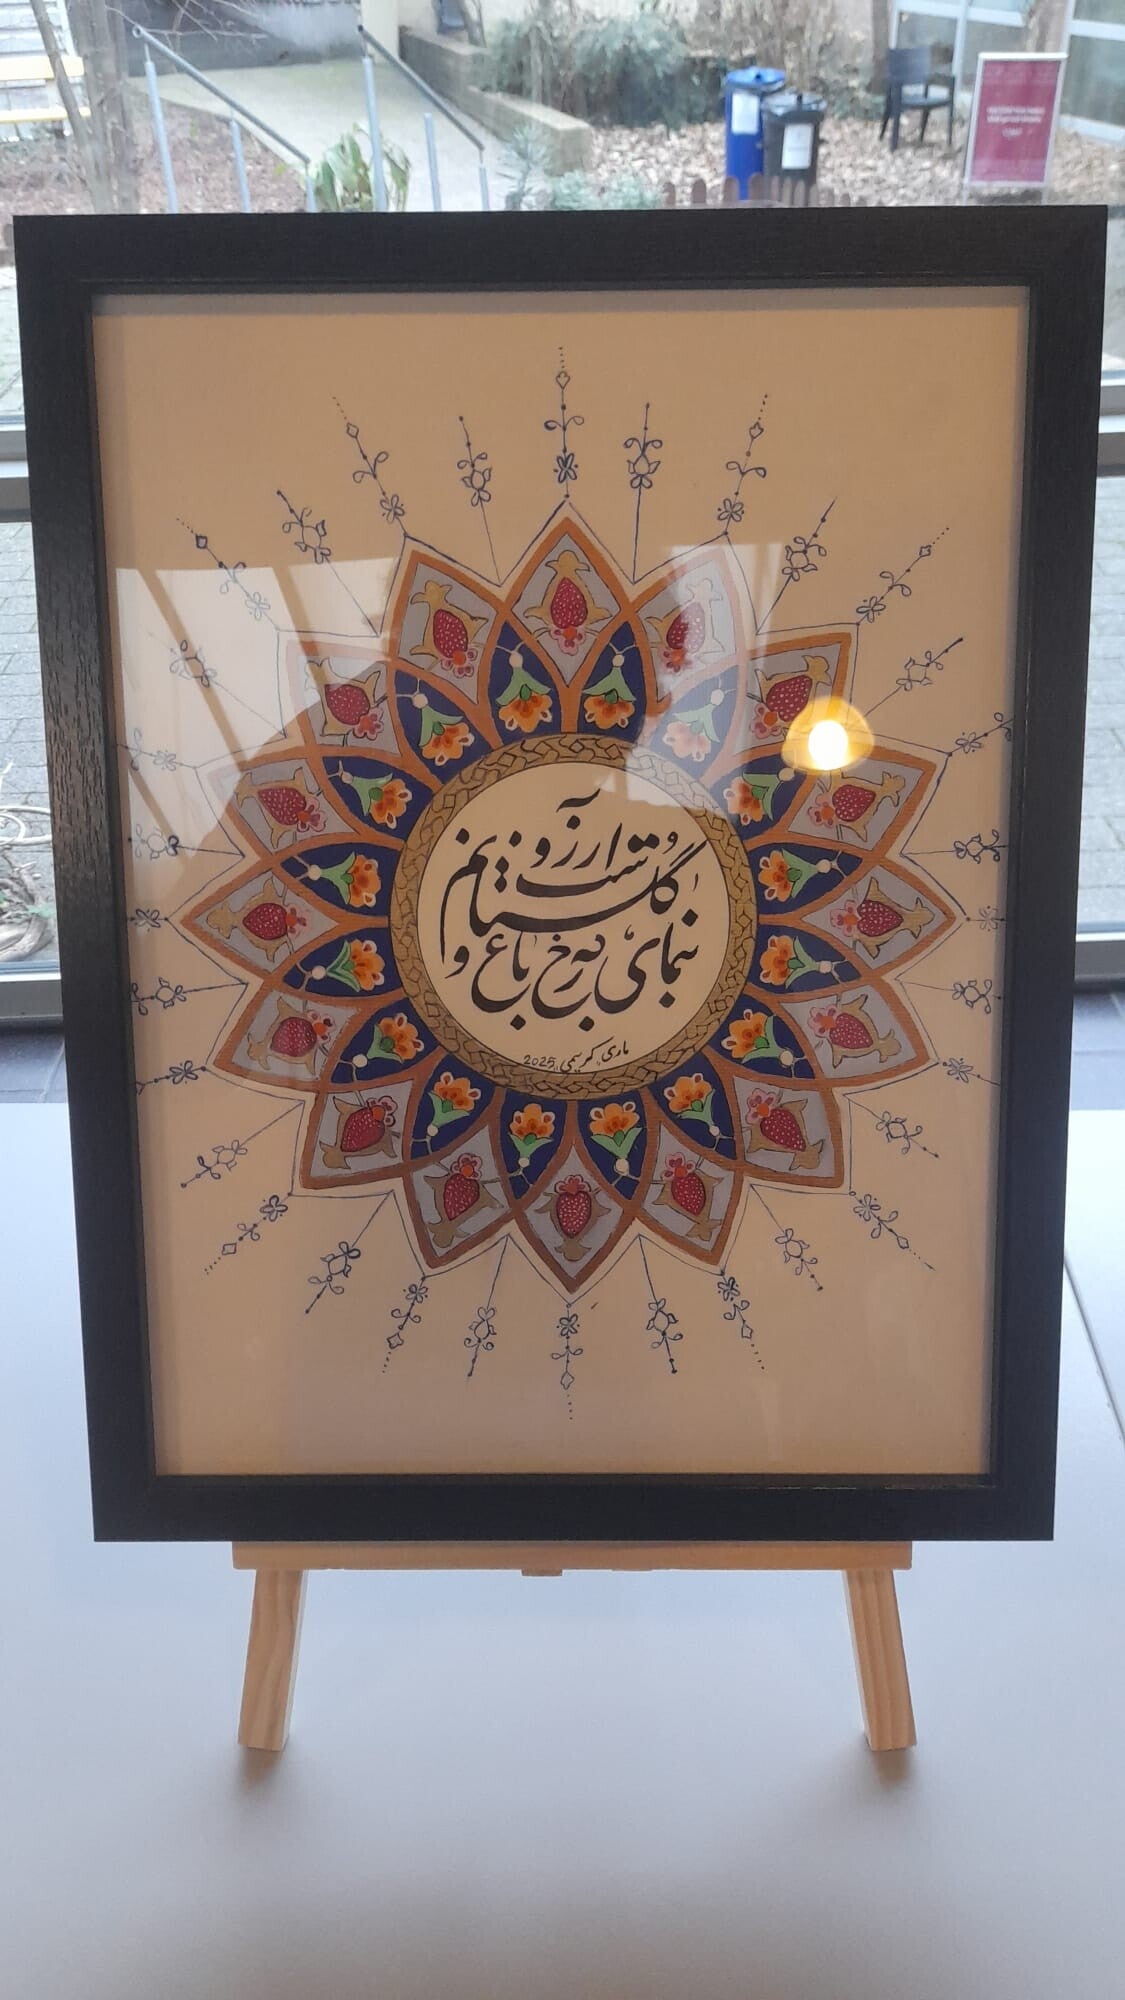 بنمای رخ که باغ و
گلستانم آرزوست
ماری کریمی 2025